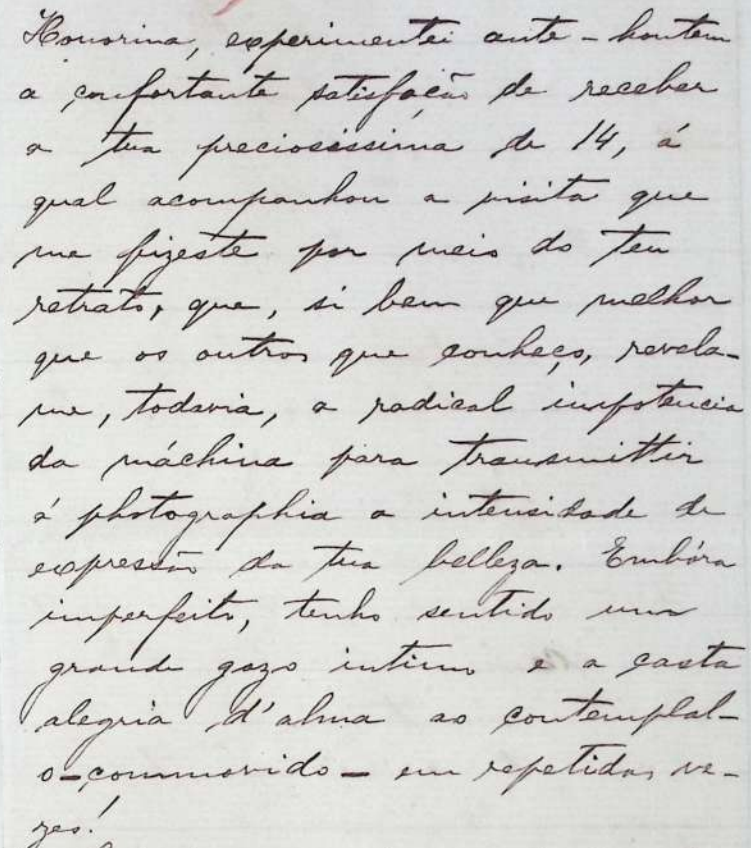 Honorina, experimentei ante-hontem
a confortante satisfação de receber
a tua preciosissima de 14, á
qual acompanhou a visita que
me fizeste por meio do teu
retrato, que, si bem que melhor
que os outros que conheço, revela-
me, todavia, a radical impotencia
da máchina para transmittir
á photographia a intensidade de
expressão da tua belleza. Embóra
imperfeito, tenho sentido um
grande gozo intimo e a casta
alegria d'alma ao contemplal-
o-commovido- em repetidas ve-
zes!